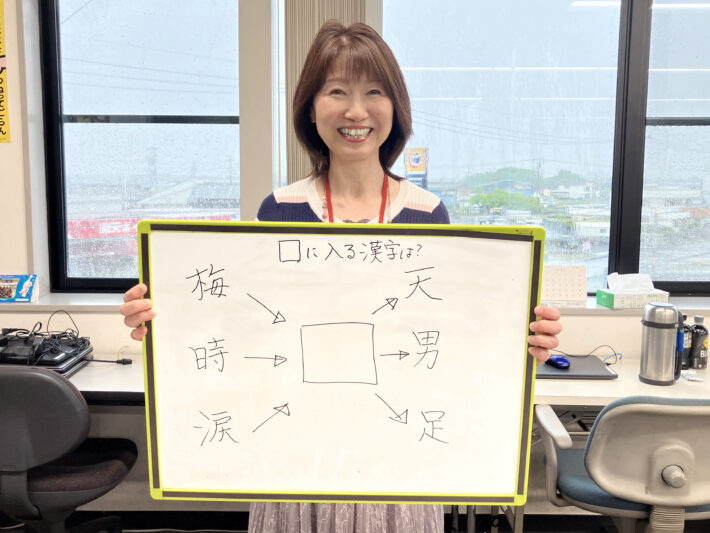 □に入る漢字は?
梅 天
時 男
涙 足